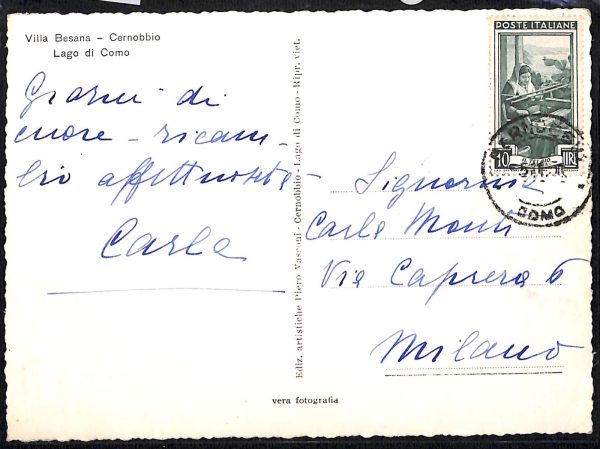 Villa Besana - Cernobbio
Lago di Como
Grazie di
cuore - ricam-
bio affettuosità -
Carla
Ediz. artistiche Piero Vasconi - Cernobbio - Lago di Como - Ripr. viet.
POSTE ITALIANE
10 LIRE
COMO
Signorina
Carla Monti
Via Caprera 6
Milano
vera fotografia